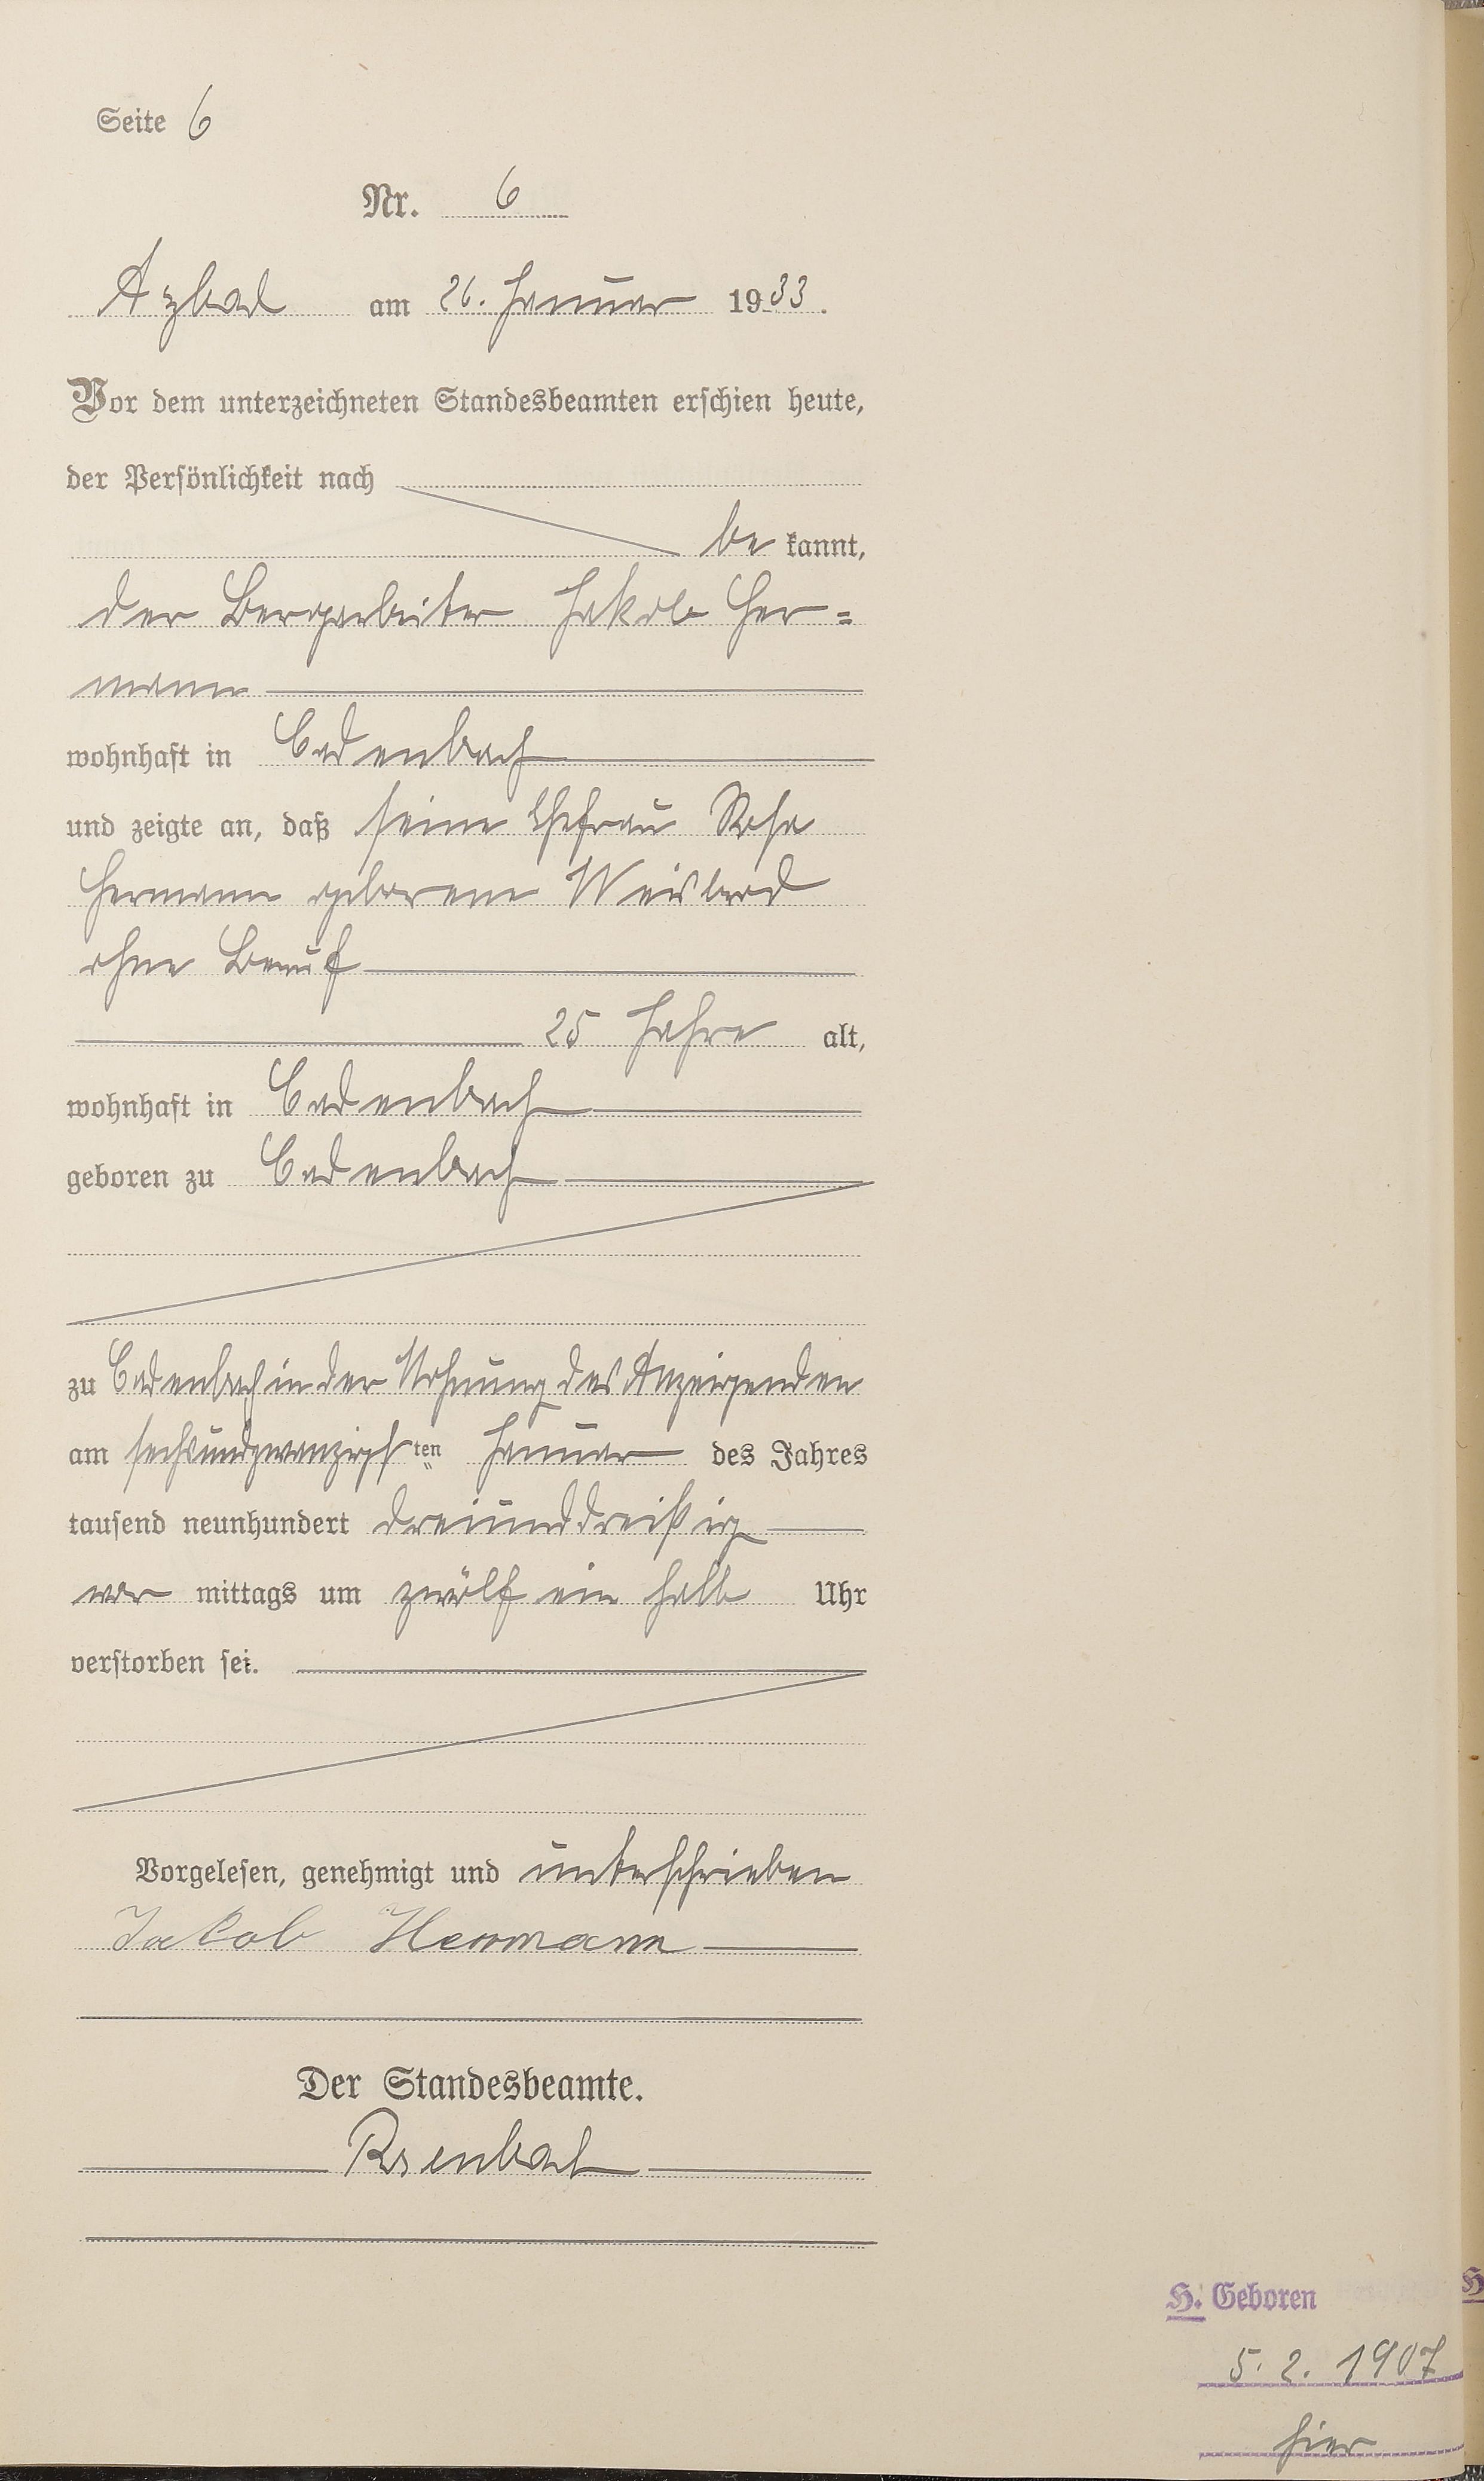 Seite 6
Nr. 6
Atzbach am 26. Januar 1933.
Vor dem unterzeichneten Standesbeamten erschien heute,
der Persönlichkeit nach
be kannt,
der Bergarbeiter Jakob Her=
mann
wohnhaft in
und zeigte an, daß seine Ehefrau Rosa
Hermann geborene
ohne Beruf
25 Jahre alt,
wohnhaft in
geboren zu
zu in der Wohnung des Anzeigenden
am sechsundzwanzigsten Januar des Jahres
tausend neunhundert dreiunddreißig
vor mittags um zwölf ein halb Uhr
verstorben sei.
Vorgelesen, genehmigt und unterschrieben
Jakob Hermann
Der Standesbeamte.
H. Geboren
5. 2. 1907
hier